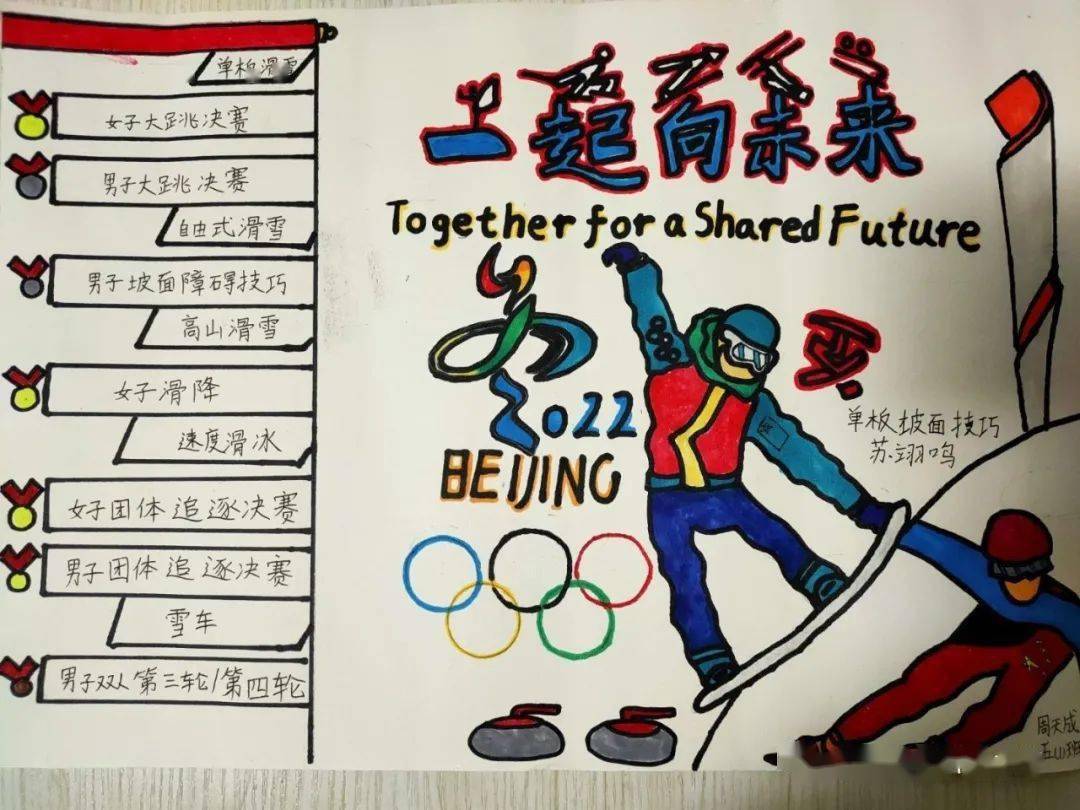 单板滑雪
女子大跳决赛
男子大跳决赛
自由式滑雪
男子坡面障碍技巧
高山滑雪
女子滑降
速度滑冰
女子团体追逐决赛
男子团体追逐决赛
雪车
男子双人第三轮/第四轮
一起向未来
Together for a Shared Future
2022
BEIJING
单板坡面技巧
苏翊鸣
周天成